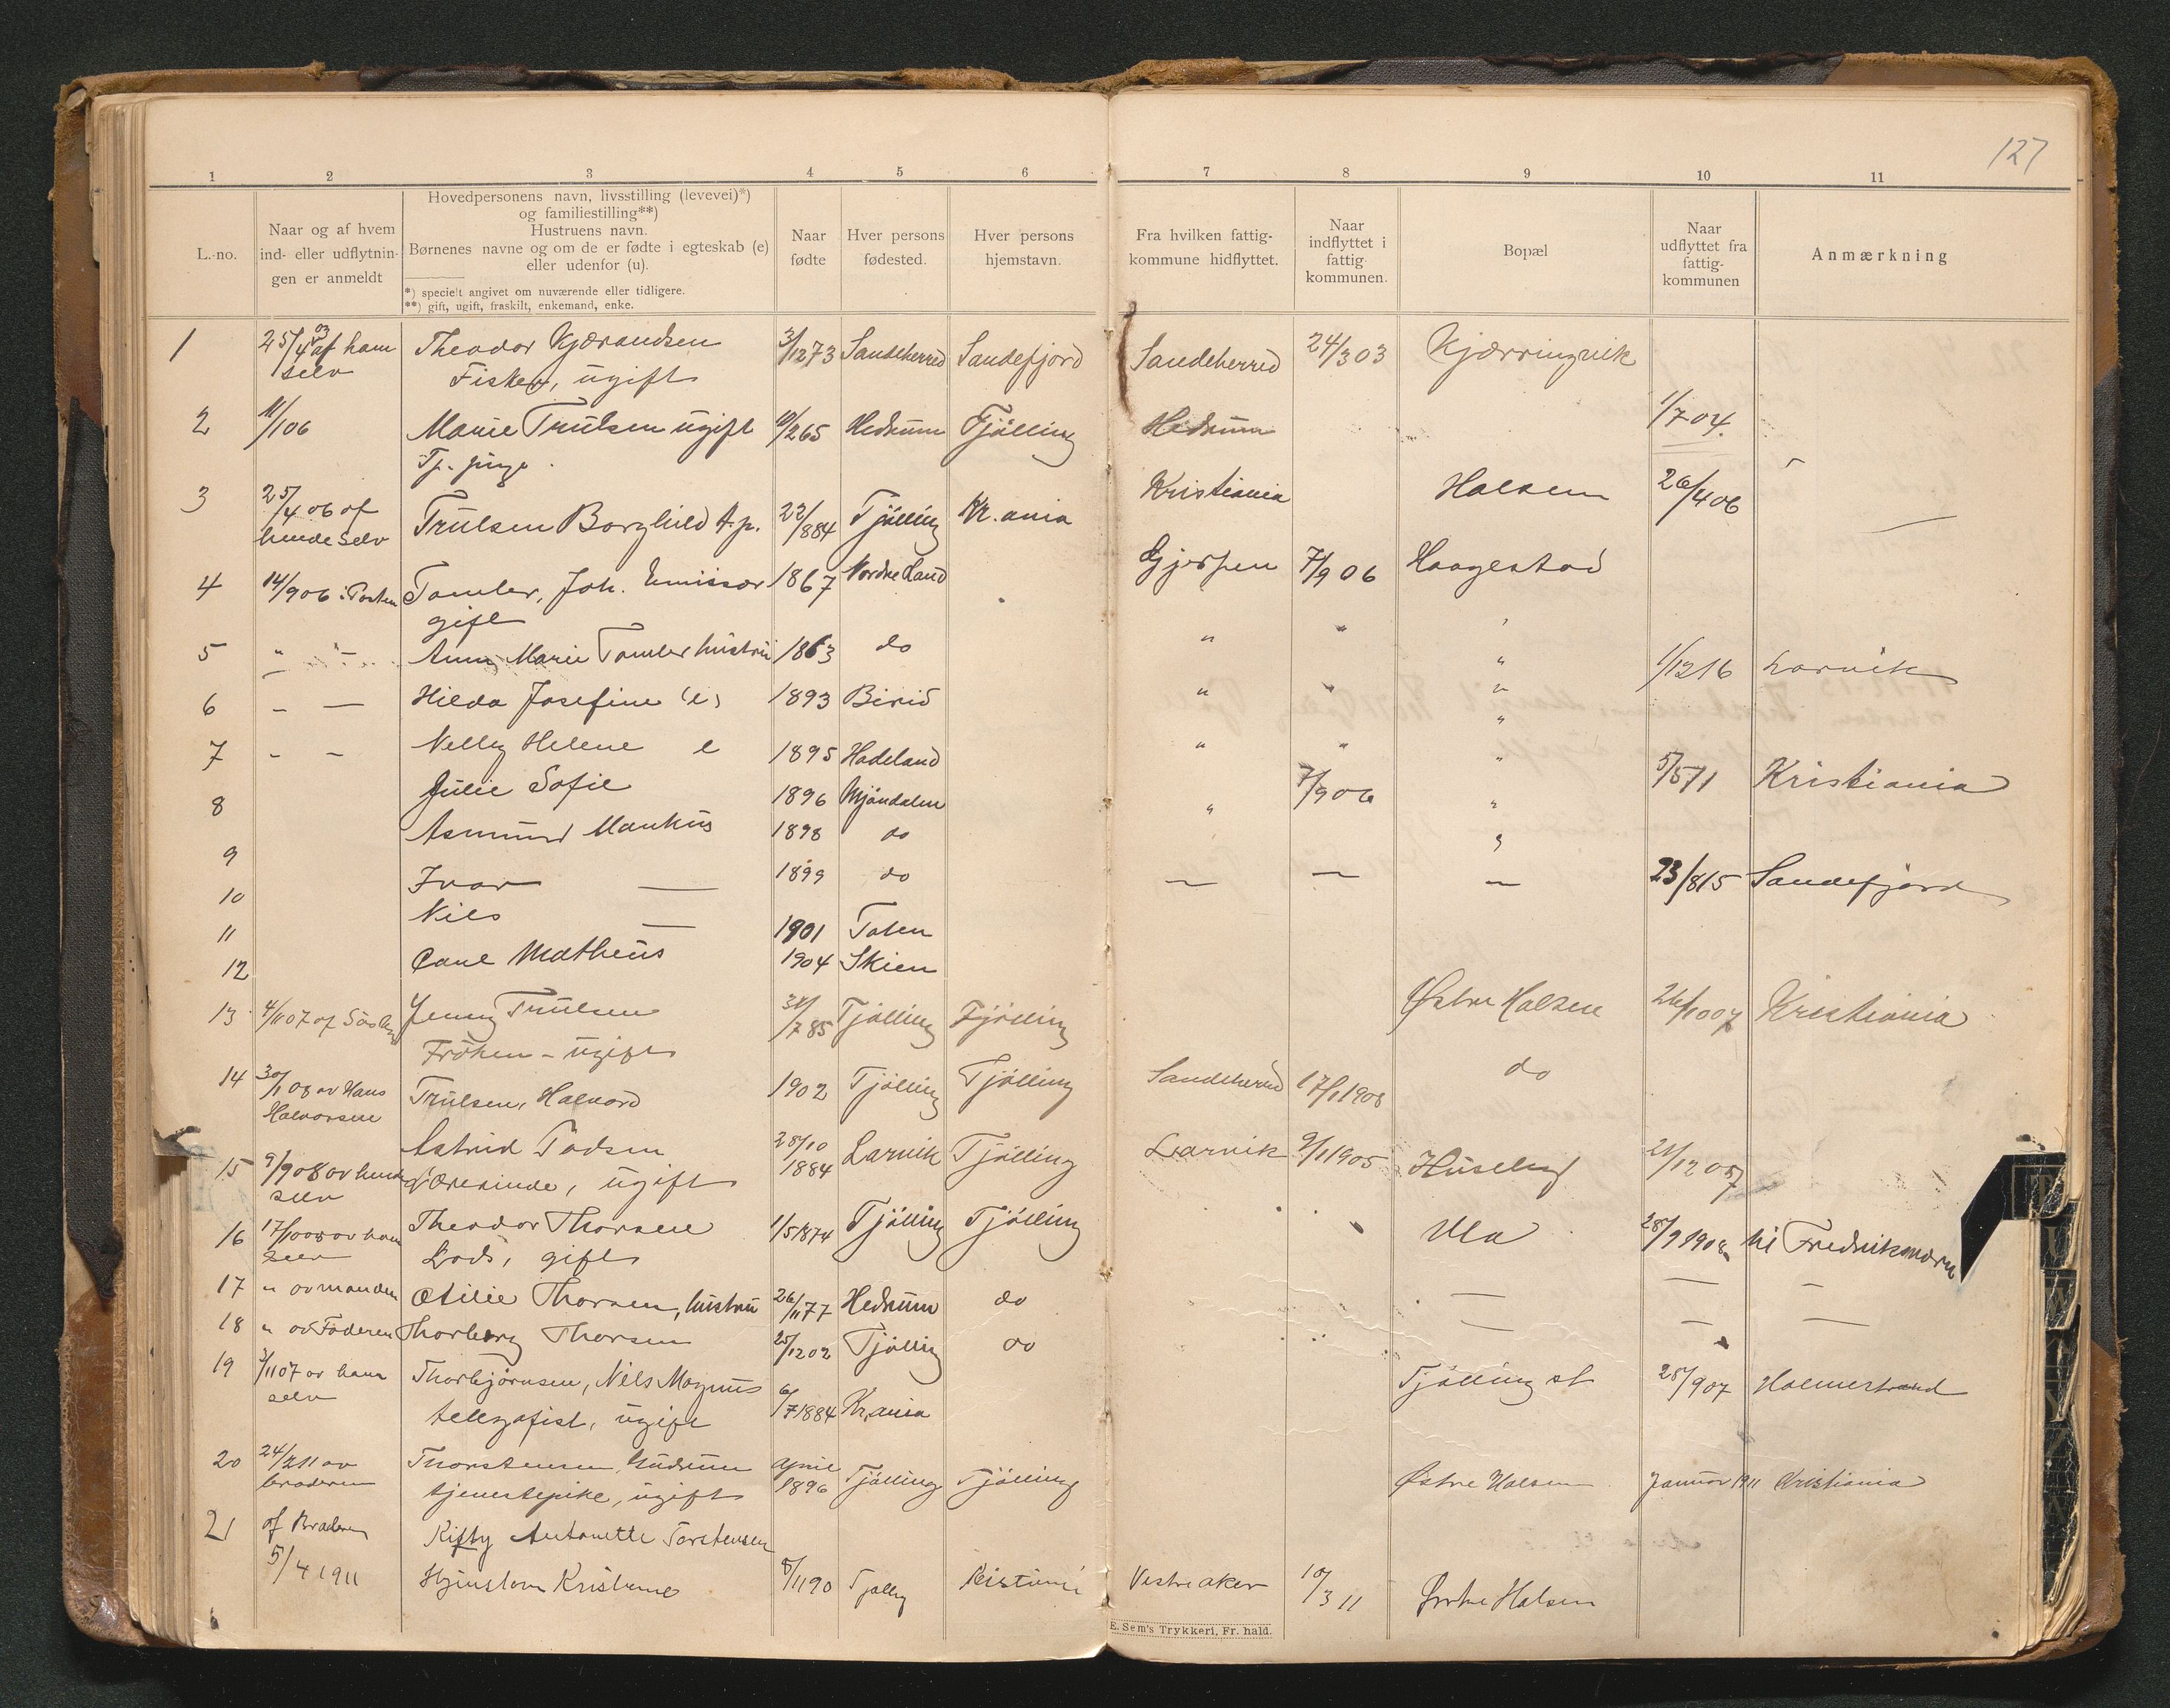 127
1 2 3 4 5 6 7 8 9 10 11
L.-no.
Naar og af hvem
ind- eller udflytnin-
gen er anmeldt
Hovedpersonens navn, livsstilling (levevei)*)
og familiestilling**)
Hustruens navn.
Børnenes navne og om de er fødte i egteskab (e)
eller udenfor (u).
*) specielt angivet om nuværende eller tidligere.
**) gift, ugift, fraskilt, enkemand, enke.
Naar
fødte
Hver persons
fødested.
Hver persons
hjemstavn.
Fra hvilken fattig-
kommune hidflyttet.
Naar
indflyttet i
fattig
kommunen.
Bopæl
Naar
udflyttet fra
fattig-
kommunen
Anmærkning
1 25/4 03 af ham Theodor Kjærandsen 3/12 73 Sandeherred Sandefjord Sandeherred 24/3 03 Kjærringvik
selv Fisker, ugift
2 11/1 06 Marie Trulsen ugift 10/2 65 Hedrum Tjölling Hedrum 1/7 04.
Tj. pige
3 25/4 06 af Trulsen Borghild t.p. 22/8 84 Tjölling Kr.ania Kristiania Halsen 26/4 06
hende selv
4 14/9 06 i Posten Tomler, Joh. Emissær 1867 Nordre Land Gjerpen 7/9 06 Haagestad
gift
5 " " Anna Marie Tomler hustru 1863 do " " " 1/12 16 Larvik
6 - — Hilda Josefine (e) 1893 Birid " " "
7 - - Nelly Helene e 1895 Hadeland " " "
8 Julie Sofie 1896 Mjöndalen " 7/9 06 " 5/5 11 Kristiania
9 Asmund Markus 1898 do
10 Ivar — 1899 do — — — 23/8 15 Sandefjord
11 Nils — 1901 Toten
12 Paul Matheus 1904 Skien
13 4/11 07 af Jenny Trulsen 31/7 85 Tjölling Tjölling Östre Halsen 26/10 07 Kristiania
Fröken - ugift
14 30/1 08 av Hans Trulsen, Halvord 1902 Tjölling Tjölling Sandeherred 17/1 1908 do
Halvorsen
15 9/9 08 av hende Astrid Todsen 28/10 1884 Larvik Tjölling Larvik 9/1 1905 Huseby 21/12 05
selv Lærerinde, ugift
16 17/10 08 av ham Theodor Thorsen 1/5 1874 Tjölling Tjölling Ula 28/9 1908 til Fredriksværn
selv Lods, gift
17 " av manden Otilie Thorsen, hustru 26/11 77 Hedrum do — — —
18 " av Faderen Thorberg Thorsen 25/12 02 Tjölling do — — —
19 3/11 07 av ham Thorbjørnsen, Nils Magnus 6/7 1884 Kr.ania Tjölling st 28/9 07 Holmestrand
selv telegrafist, ugift
20 24/2 11 av Thorstensen, Gudrun April 1896 Tjölling Tjölling Østre Halsen Januar 1911 Kristiania
broderen tjenestepike, ugift
21 af Broderen Kitty Antonette Torstensen
5/4 1911 Kristiania 8/11 90 Tjølling Kristiania Vestre aker 10/3 11 Østre Halsen
E. Sem's Trykkeri, Fr. hald.